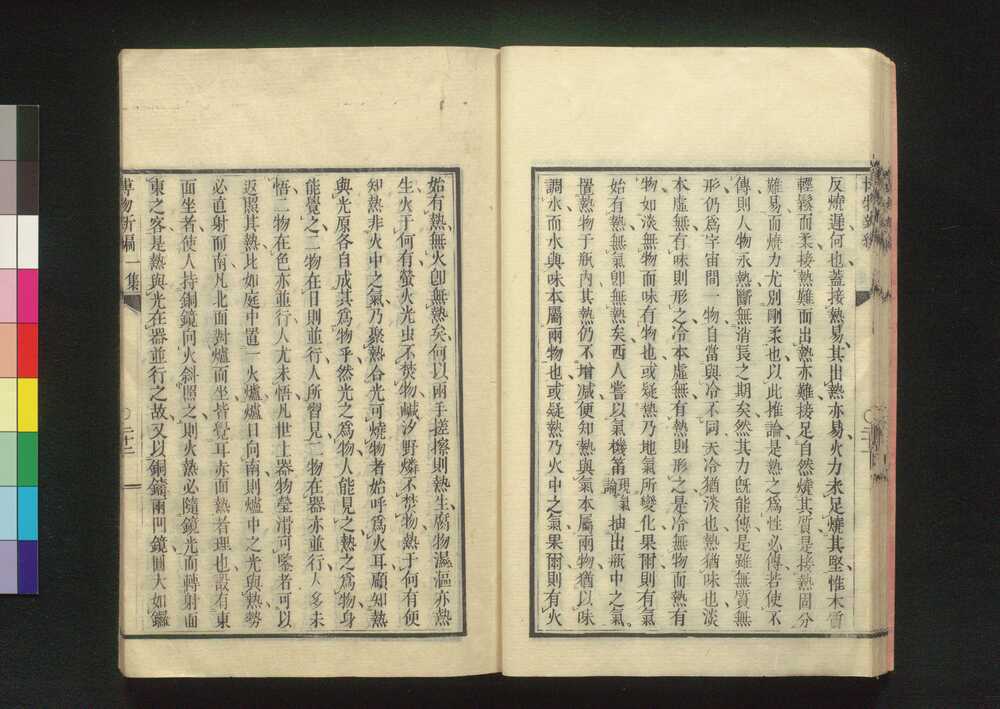 反燒遲何也蓋接熱易其出熱亦易火力未足燒其堅惟木質
輕鬆而柔接熱難而出熱亦難接足自然燒其質是接熱固分
難易而燒力尤別剛柔也以此推論是熱之為性必傳若使不
傳則人物永熱斷無消長之期矣然其力既能傳是雖無質無
形仍爲宇宙間一物自當與冷不同天冷猶淡也熱猶味也淡
本虛無有味則形之冷本虛無有熱則形之是冷無物而熱有
物如淡無物而味有物也或疑熱乃地氣所變化果爾則有氣
始有熱無氣卽無熱矣西人嘗以氣機筩現氣論抽出瓶中之氣
置熱物于瓶內其熱仍不增減便知熱與氣本屬兩物猶以味
調水而水與味本屬兩物也或疑熱乃火中之氣果爾則有火
始有熱無火卽無熱矣何以兩手搓擦則熱生腐物濕漚亦熱
生火于何有螢火光虫不焚物鹹汐野燐不焚物熱于何有便
知熱非火中之氣乃聚熱合光可燒物者始呼爲火耳顧知熱
與光原各自成其爲物乎然光之爲物人能見之熱之爲物身
能覺之二物在日則並行人所習見二物在器亦並行人多未
悟二物在色亦並行人尤未悟凡世上器物瑩滑可鑒者可以
返照其熱比如庭中置一火爐爐口向南則爐中之光與熱勢
必直射而南凡北面對爐而坐皆覺耳赤面熱者理也設有東
面坐者使人持銅鏡向火斜照之則火熱必隨鏡光而轉射面
東之客是熱與光在器並行之故又以銅鑄兩凹鏡圓大如鑼
博物新編一集
二十二